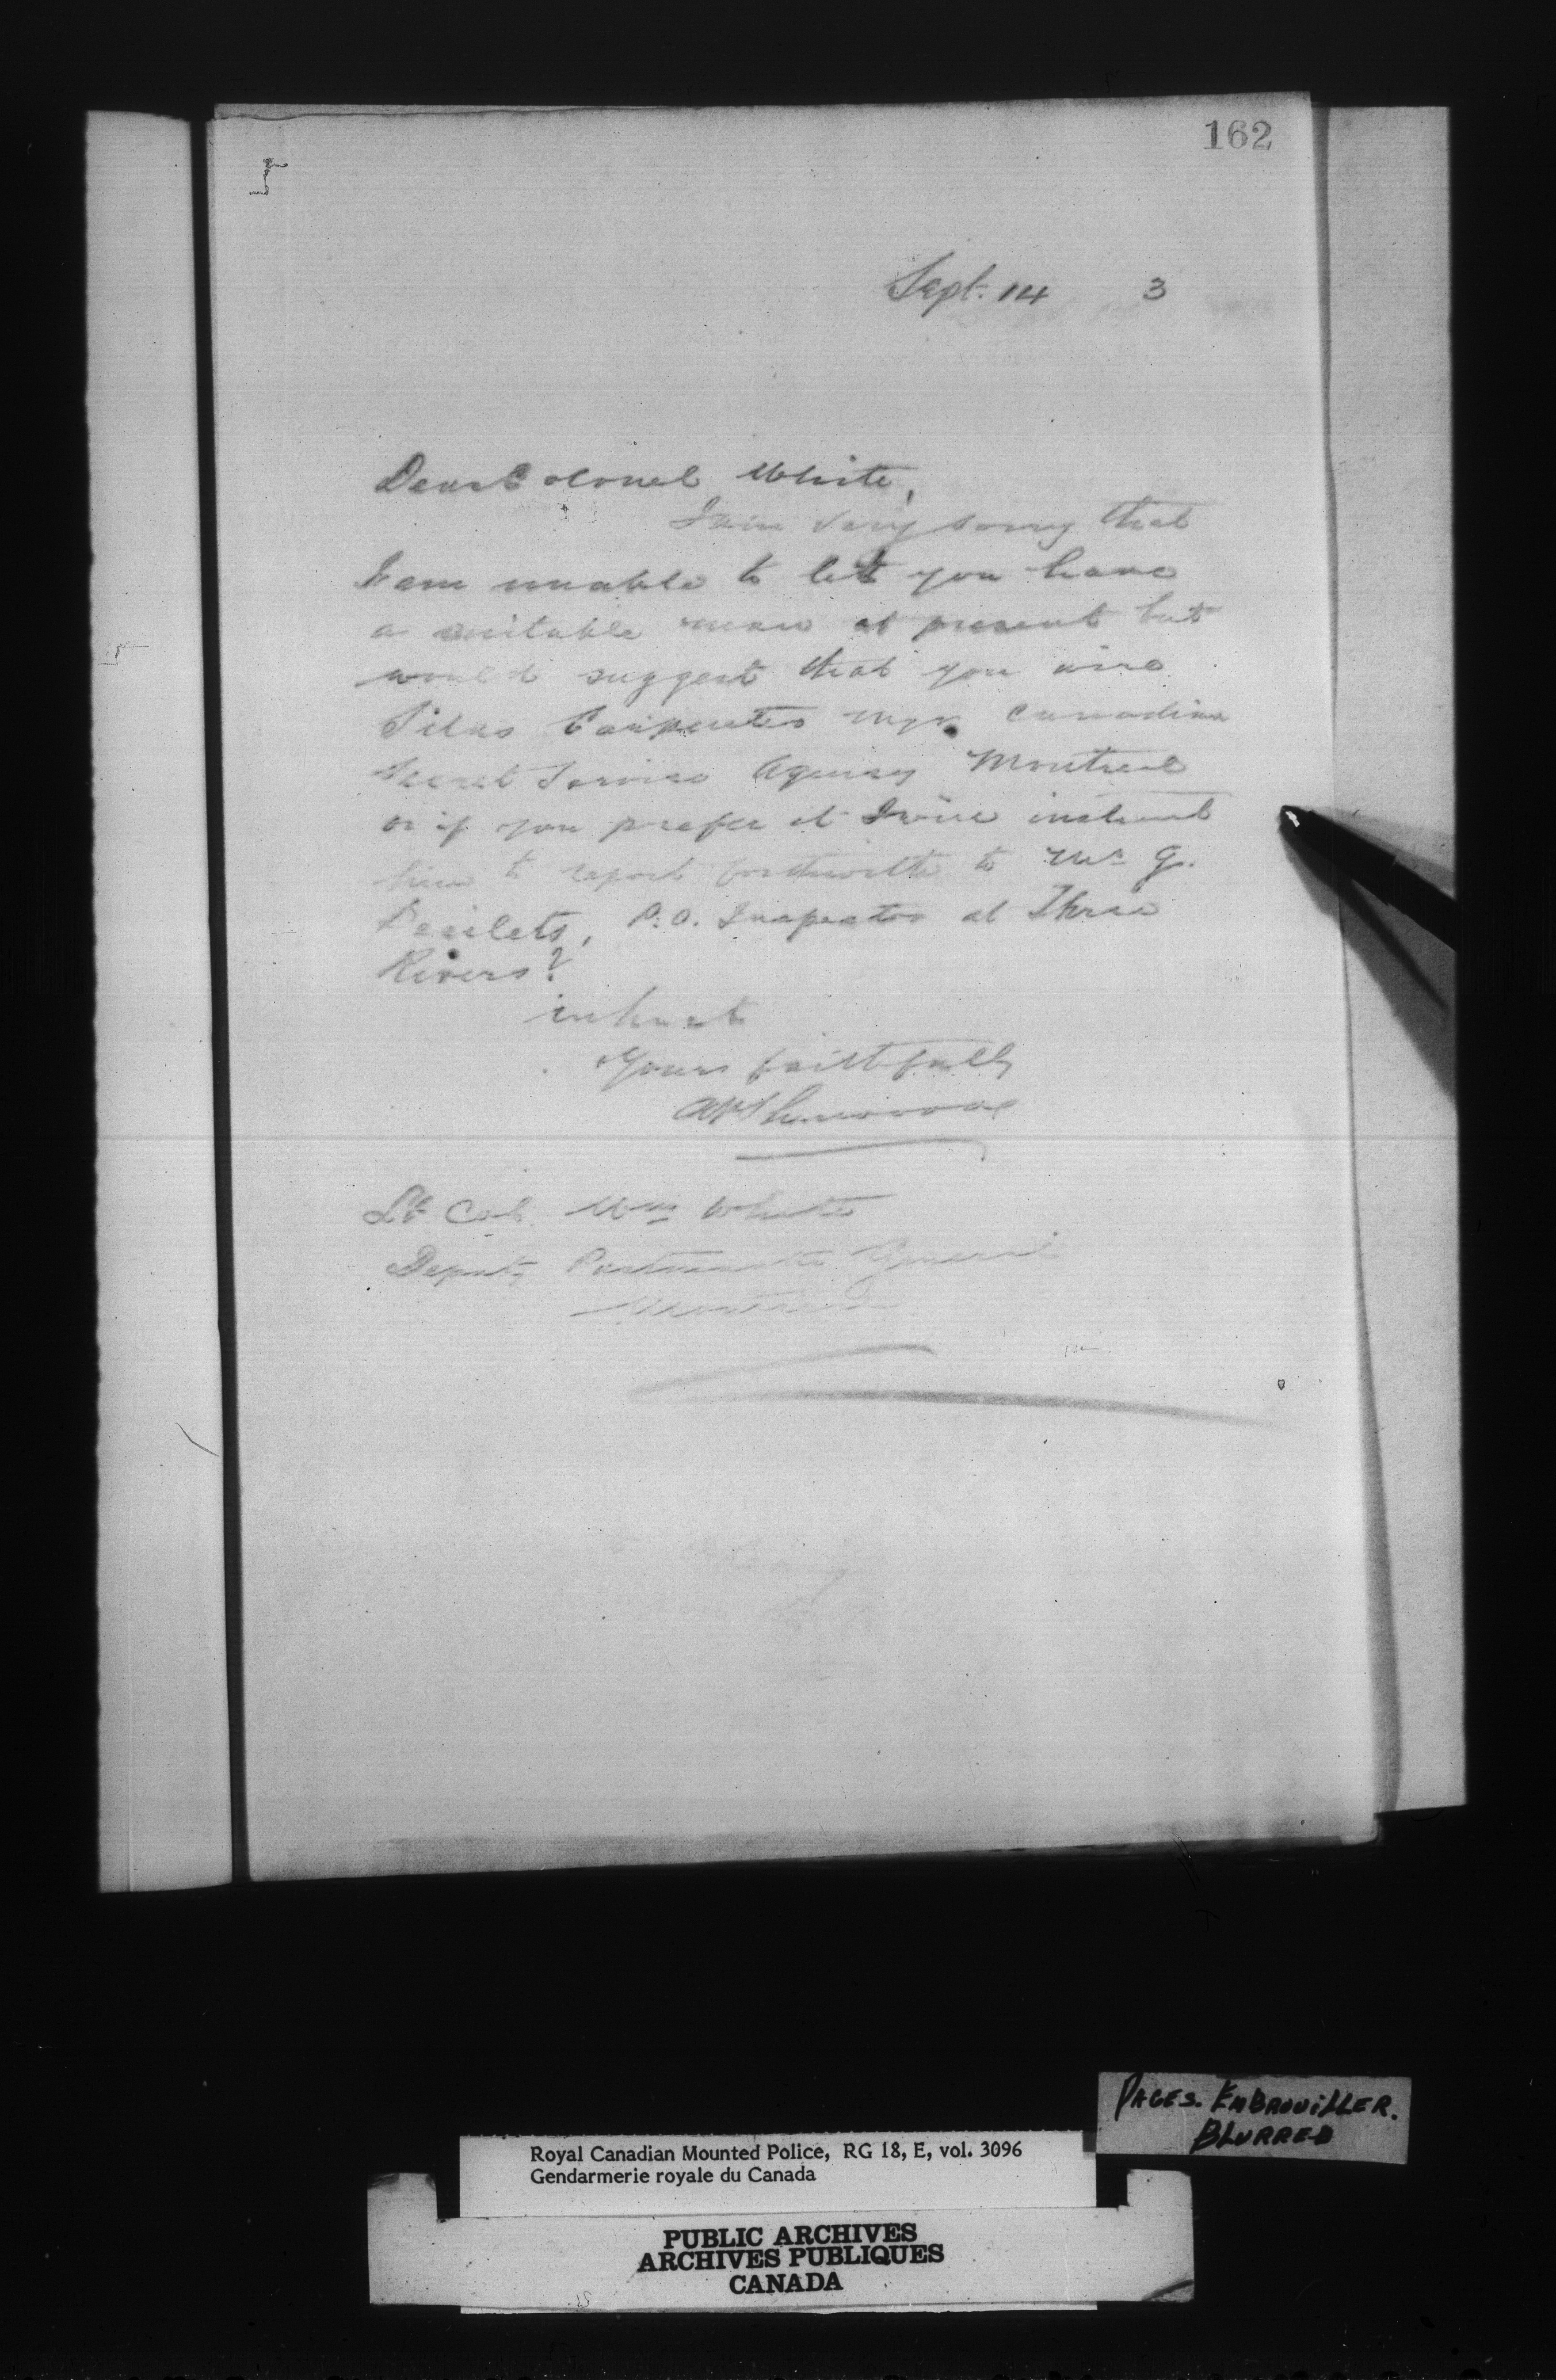 162
Sept. 14 3
Dear Colonel White,
I am very sorry that
I am unable to let you have
a suitable man at present but
would suggest that you wire
Silas Carpenter mgr. Canadian
Secret Service Agency Montreal
or if you prefer it I will instruct
him to report forthwith to Mr G.
P.O. Inspector at Three
Rivers?
in haste
Yours faithfully
APSherwood
Lt Col. Wm White
Deputy Postmaster General
Montreal
PAGES. EMBROUILLER.
BLURRED
Royal Canadian Mounted Police, RG 18, E, vol. 3096
Gendarmerie royale du Canada
PUBLIC ARCHIVES
ARCHIVES PUBLIQUES
CANADA